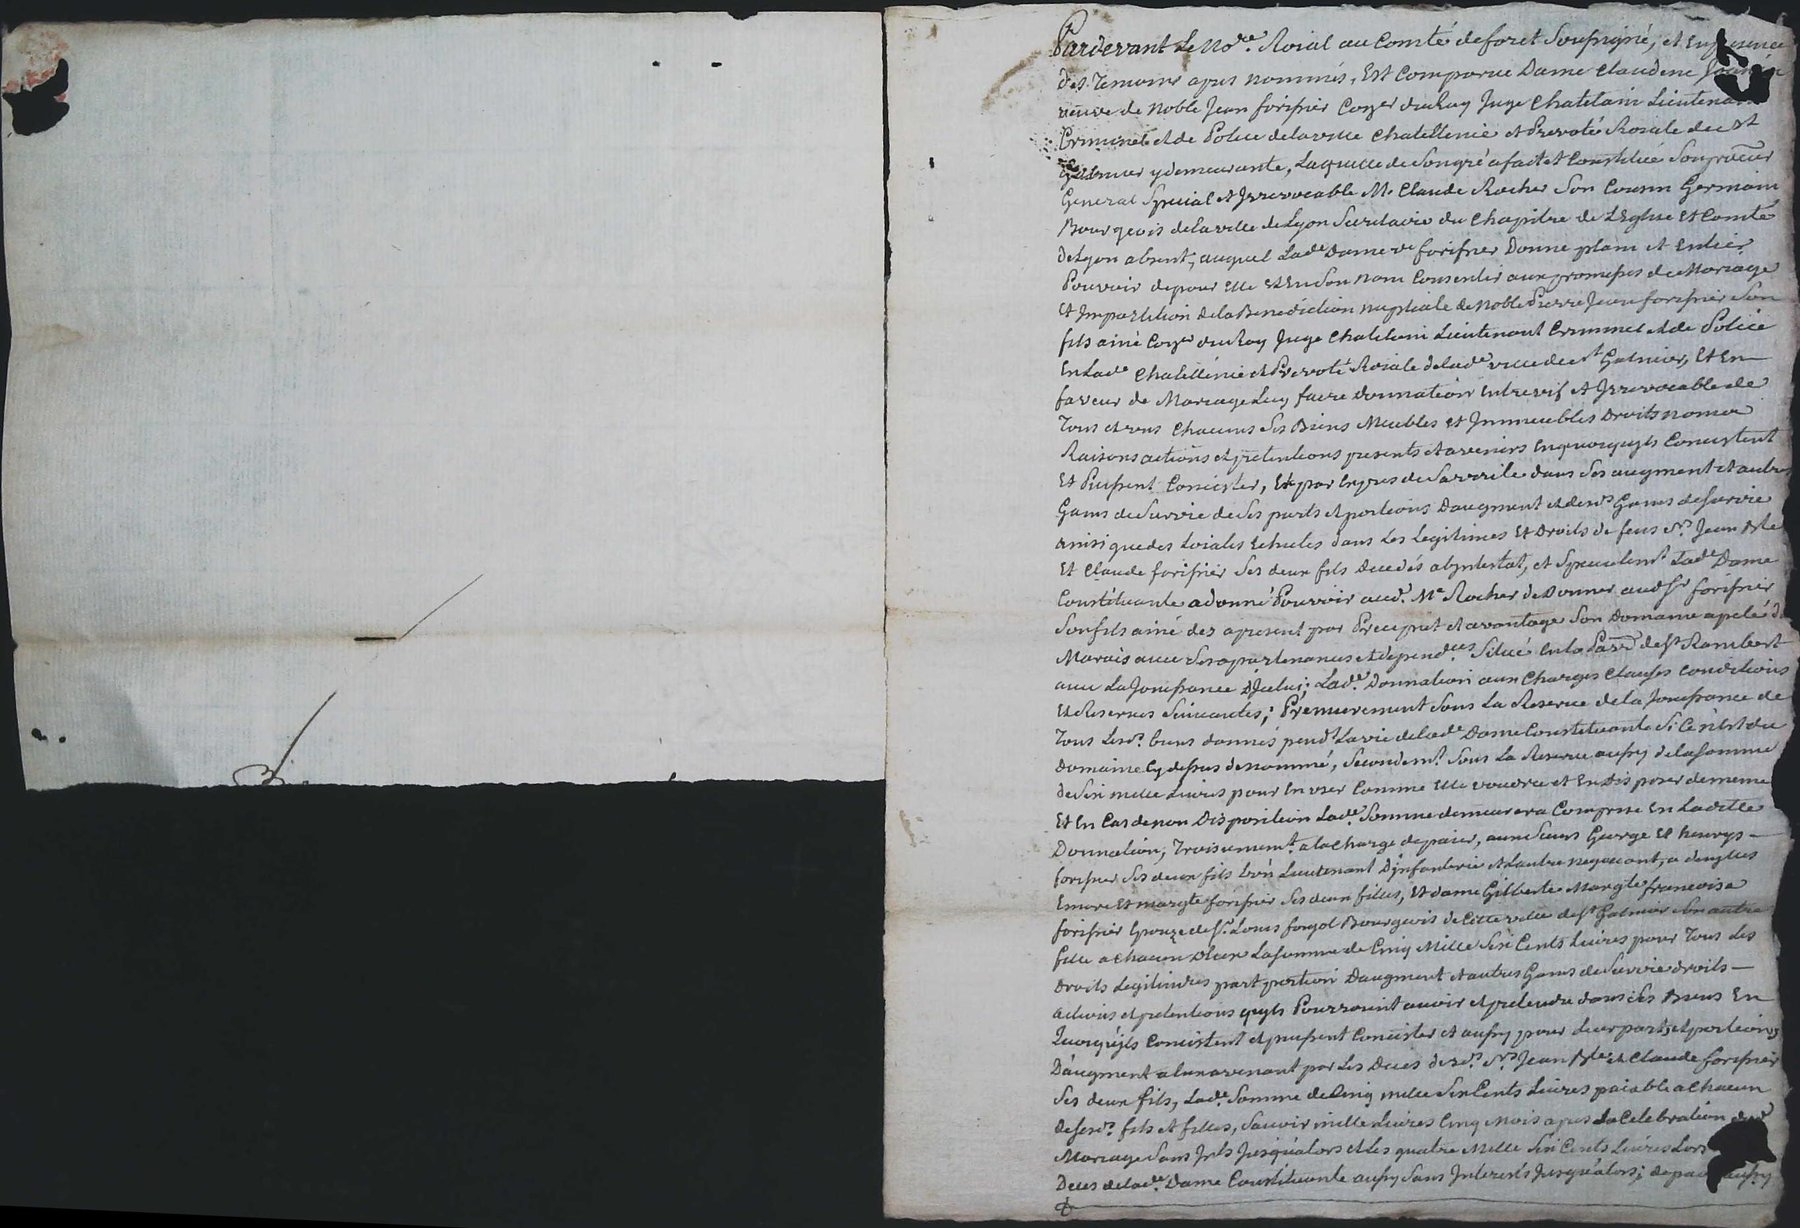 Pardevant Le No.re Roial au Comté de foret Soussigné, et En presence
des Temoins apres nommés, Est Comparue Dame Claudine
veuve de Noble Jean forissier Coner du Roy Juge Chatelain Lieutenant
Criminel et de Police de la ville Chatellenie et Prevoté Roiale de St
Galmier y demeurante, Laquelle de Son gré a fait et Constitué Son proceur
General Special et Irrevocable Me Claude Rocher Son Cousin Germain
Bourgeois de la ville de Lyon Secretaire du Chapitre de L'Eglise et Comté
de Lyon absent, auquel Lade Dame ve forissier Donne plain et Entier
Pouvoir de pour Elle et En Son nom Consentir aux promesses de Mariage
Et Impartition de la Benediction nuptiale de Noble Pierre Jean forissier Son
fils ainé Coner du Roy Juge Chatelain Lieutenant Criminel et de Police
En Lade Chatellenie et Prevoté Roiale de lade ville de St Galmier, Et En
faveur de Mariage Luy faire Donnation Entrevif et Irrevocable de
Tous et uns Chacuns Ses Biens Meubles et Immeubles Droits noms
Raisons actions et pretentions presents et avenirs En quoy quyls Concistent
Et Puissent Concister, Et par Expres de Sa dans Ses augment et autres
Gains de Survie de Ses parts et portions Daugment et desds Gains de Survie
ainsi que des Loiales Echutes dans Les Legitimes Et Droits de feus Srs Jean Bte
Et Claude forissier Ses deux fils Decedés abintestat, et Specialemt Lade Dame
Constituante a donné Pouvoir aud. Me Rocher de Donner aud Sr forissier
Son fils ainé des apresent par Preciput et avantage Son Domaine apelé
Marais avec Ses apartenances et dependces Situé En la Parse de St Rambert
avec La Jouissance D'Jcelui; Lade Donnation aux Charges Clauses Conditions
Et Reserves Suivantes; Premierement Sous La Reserve de la Jouissance de
Tous Lesd. biens donnés pendt La vie de lade Dame Constituante Si Ce n'est du
Domaine Cy dessus denommé, Secondemt Sous La Reserve aussy de la Somme
de Six mille Livres pour En user Comme Elle voudra et En Disposer de meme
Et En Cas de non Disposition Lade Somme demeurera Comprise En Laditte
Donnation, Troisiement a la Charge de paier, aux Sieurs George Et heurys
forissier Ses deux fils L'un Lieutenant D'Jnfanterie et L'autre negociant, a
Et margte forissier Ses deux filles, Et dame Gilberte Margte francoise
forissier Epouze de Sr Louis Bourgeois de Cette ville de St Galmier Son autre
fille a Chacun D'Eux La Somme de Cinq Mille Six Cents Livres pour Tous Les
Droits Legitimes part portion Daugment et autres Gains de Survie droits
actions et pretentions quyls Pourroint avoir et pretendre dans Ses Biens En
Quoiqu'yls Concistent et puissent Concister et aussy pour Leur parts et portions
D'augment a L'un avenant par Les Deces desd. Srs Jean Bte et Claude forissier
Ses deux fils, Lade Somme de Cinq mille Six Cents Livres paiable a Chacun
de Sesd. fils et filles, Sauoir mille Livres Cinq mois apres la Celebration dud
Mariage Sans Jnts Jusqu'alors et Les quatre Mille Six Cents Livres Lors
Deces de lade Dame Constituante aussy Sans Jnterests Jusqu'alors; de paier aussy